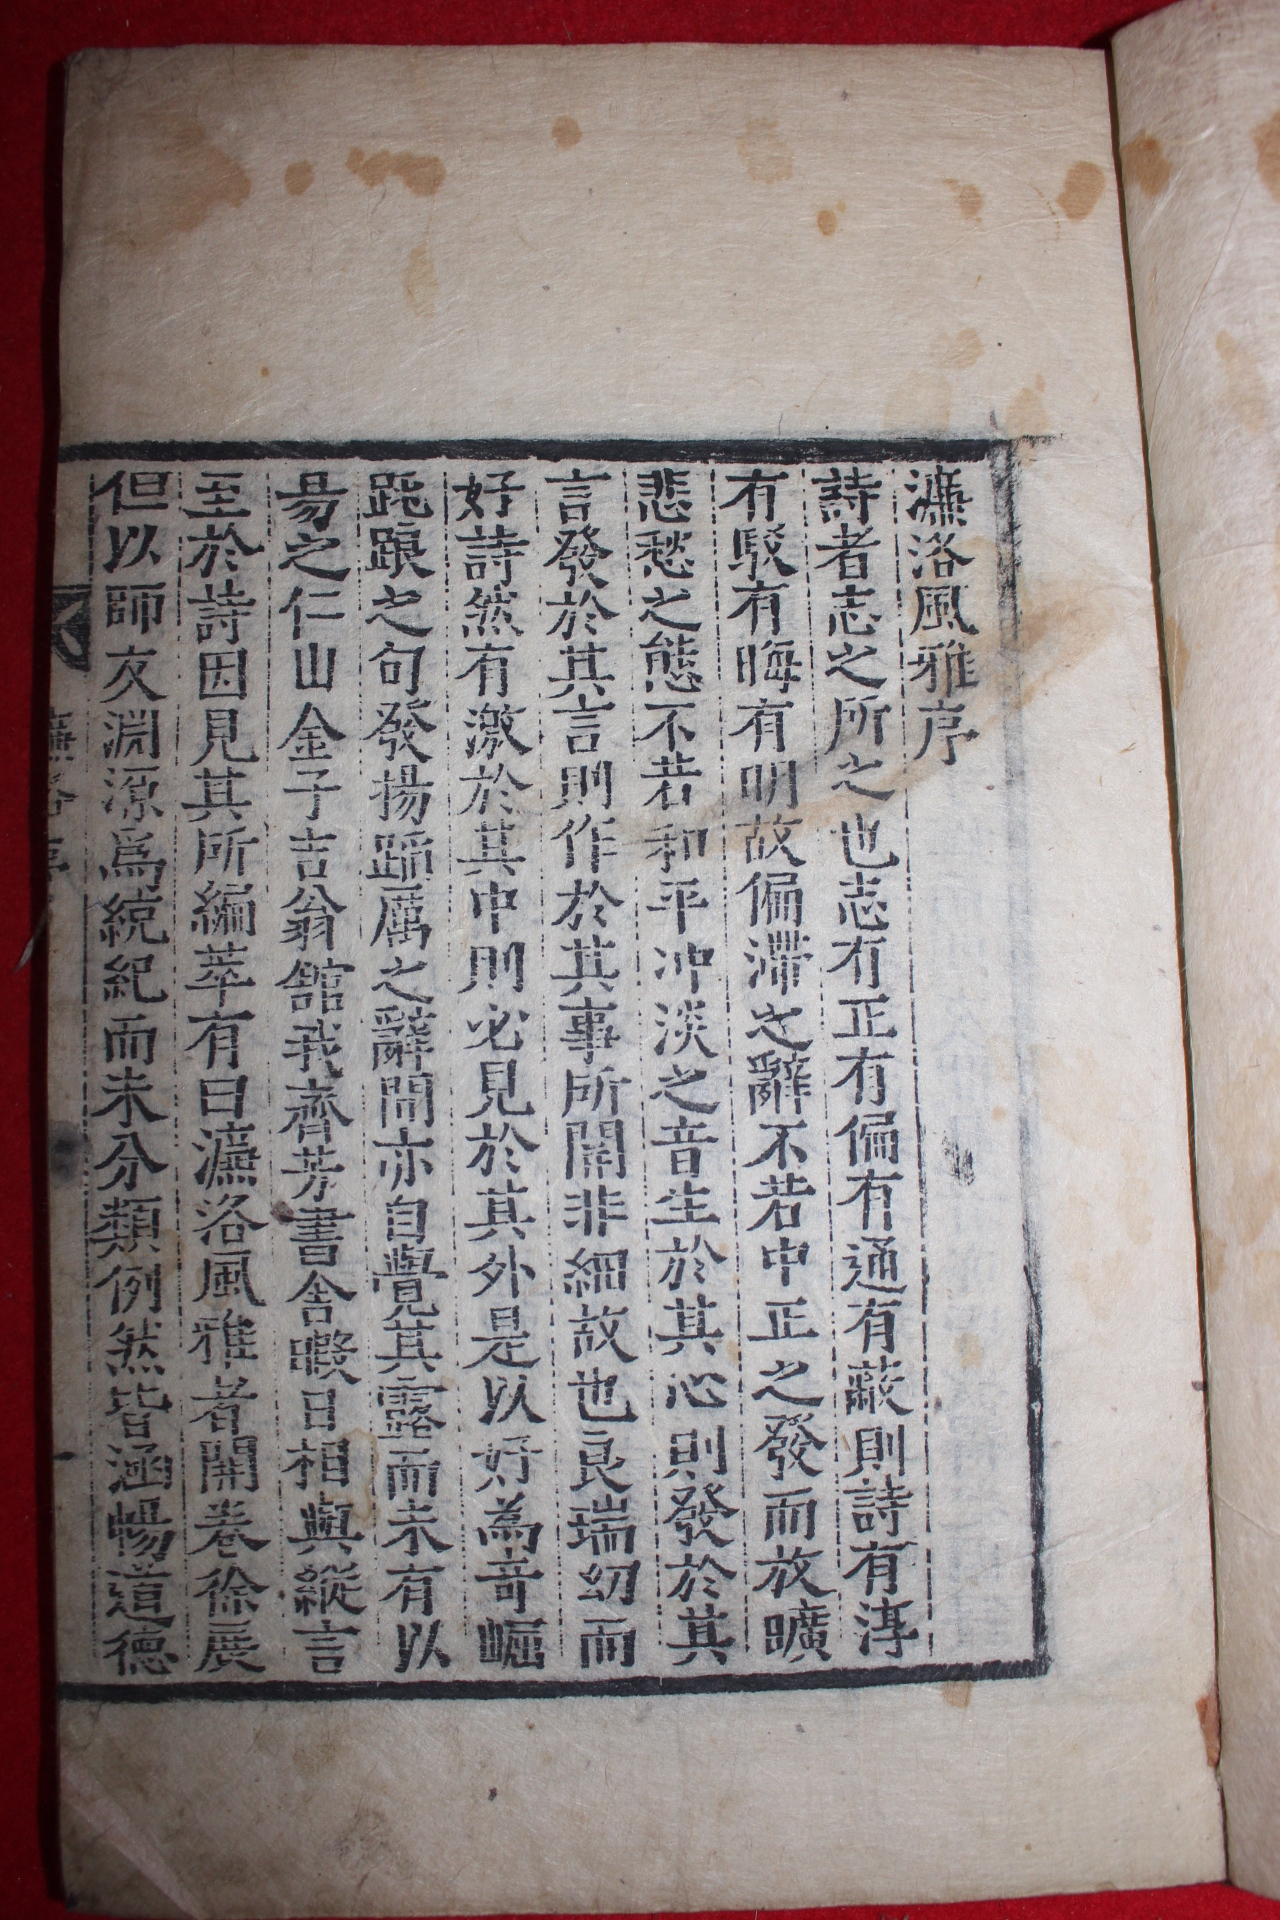 濂洛風雅序
詩者志之所之也志有正有偏有通有蔽則詩有淳
有駁有晦有明故偏滯之辭不若中正之發而放曠
悲愁之態不若和平冲淡之音生於其心則發於其
言發於其言則作於其事所關非細故也良瑞幼而
好詩然有激於其中則必見於其外是以好為奇崛
跪踉之句發揚蹈厲之辭間亦自覺其露而未有以
易之仁山金子吉翁舘我齊芳書舍暇日相與縱言
至於詩因見其所編萃有曰濂洛風雅者開卷徐展
但以師友淵源爲統紀而未分類例然皆涵暢道德
濂洛序